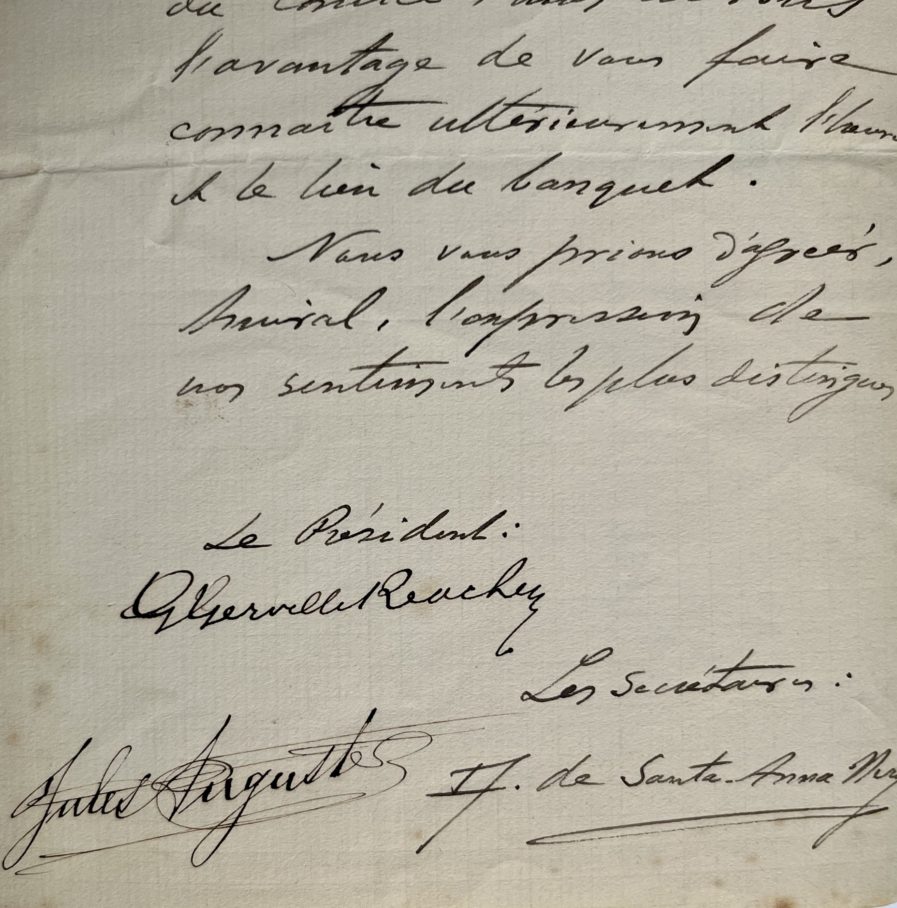 l'avantage de vous faire
connaître ultérieurement l'heure
et le lieu du banquet.
Nous vous prions d'agréer,
Amiral, l'expression de
nos sentiments les plus distingués
Le Président:
G Gerville Réache
Les Secrétaires:
Jules Auguste
F. J. de Santa-Anna Nery